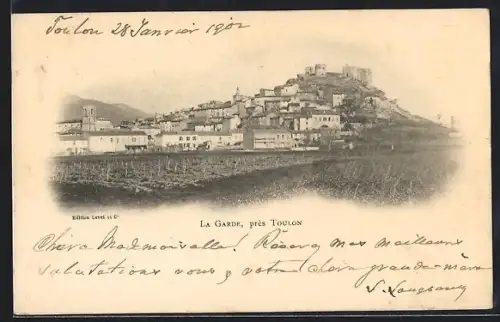 Toulon 28 Janvier 1902
Edition Levet et Cie
LA GARDE, PRÈS TOULON
Chère Mademoiselle! Recevez mes meilleurs
salutations vous & votre chère grande-mère